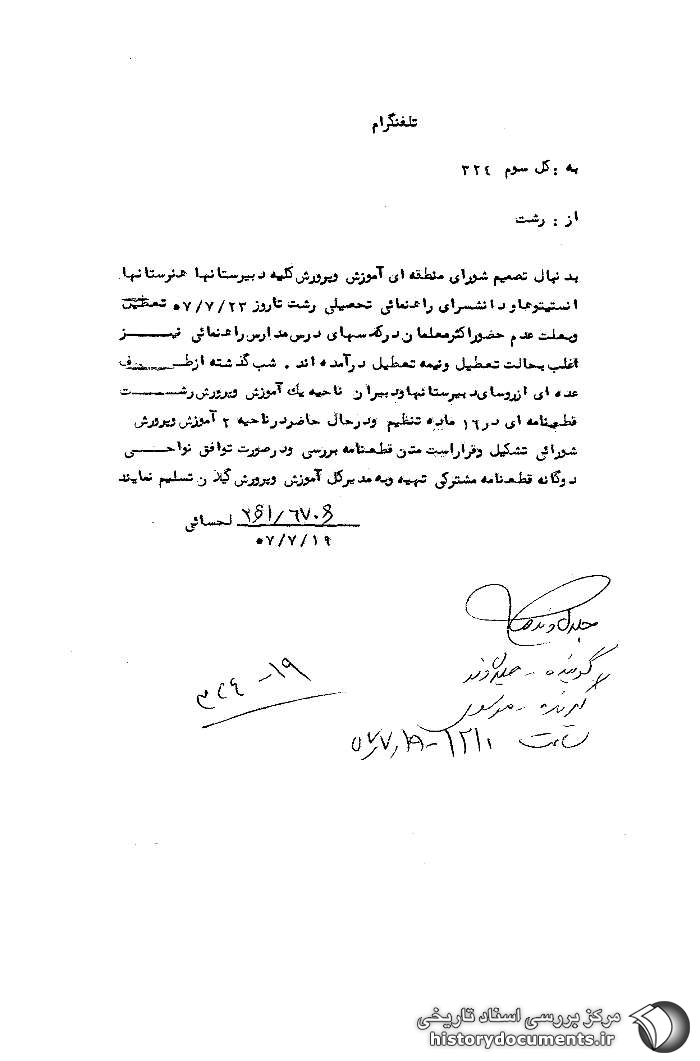 تلفنگرام
به : کل سوم ۳۲٤
از : رشت
بدنبال تصمیم شورای منطقه ای آموزش وپرورش کلیه دبیرستانها هنرستانها
انستیتوها و دانشسرای راهنمائی تحصیلی رشت تاروز ۵۷/۷/۲۳ تعطیل
وبعلت عدم حضور اکثر معلمان در کلاسهای درس مدارس راهنمائی نیز
اغلب بحالت تعطیل ونیمه تعطیل درآمده اند . شب گذشته ازطرف
عده ای ازروسای دبیرستانها ودبیران ناحیه یك آموزش وپرورش رشت
قطعنامه ای در ۱٦ ماده تنظیم ودرحال حاضر درناحیه ۲ آموزش وپرورش
شورائی تشکیل وقراراست متن قطعنامه بررسی ودرصورت توافق نواحی
دوگانه قطعنامه مشترکی تهیه وبه مدیرکل آموزش وپرورش گیلان تسلیم نمایند
لحسائی
۵۷/۷/۱۹
گوینده -
گیرنده - موسوی
ساعت ۱۲۱۰ - ۵۷/۷/۱۹
۱۹ - ۳۲٤
مرکز بررسی اسناد تاریخی
historydocuments.ir